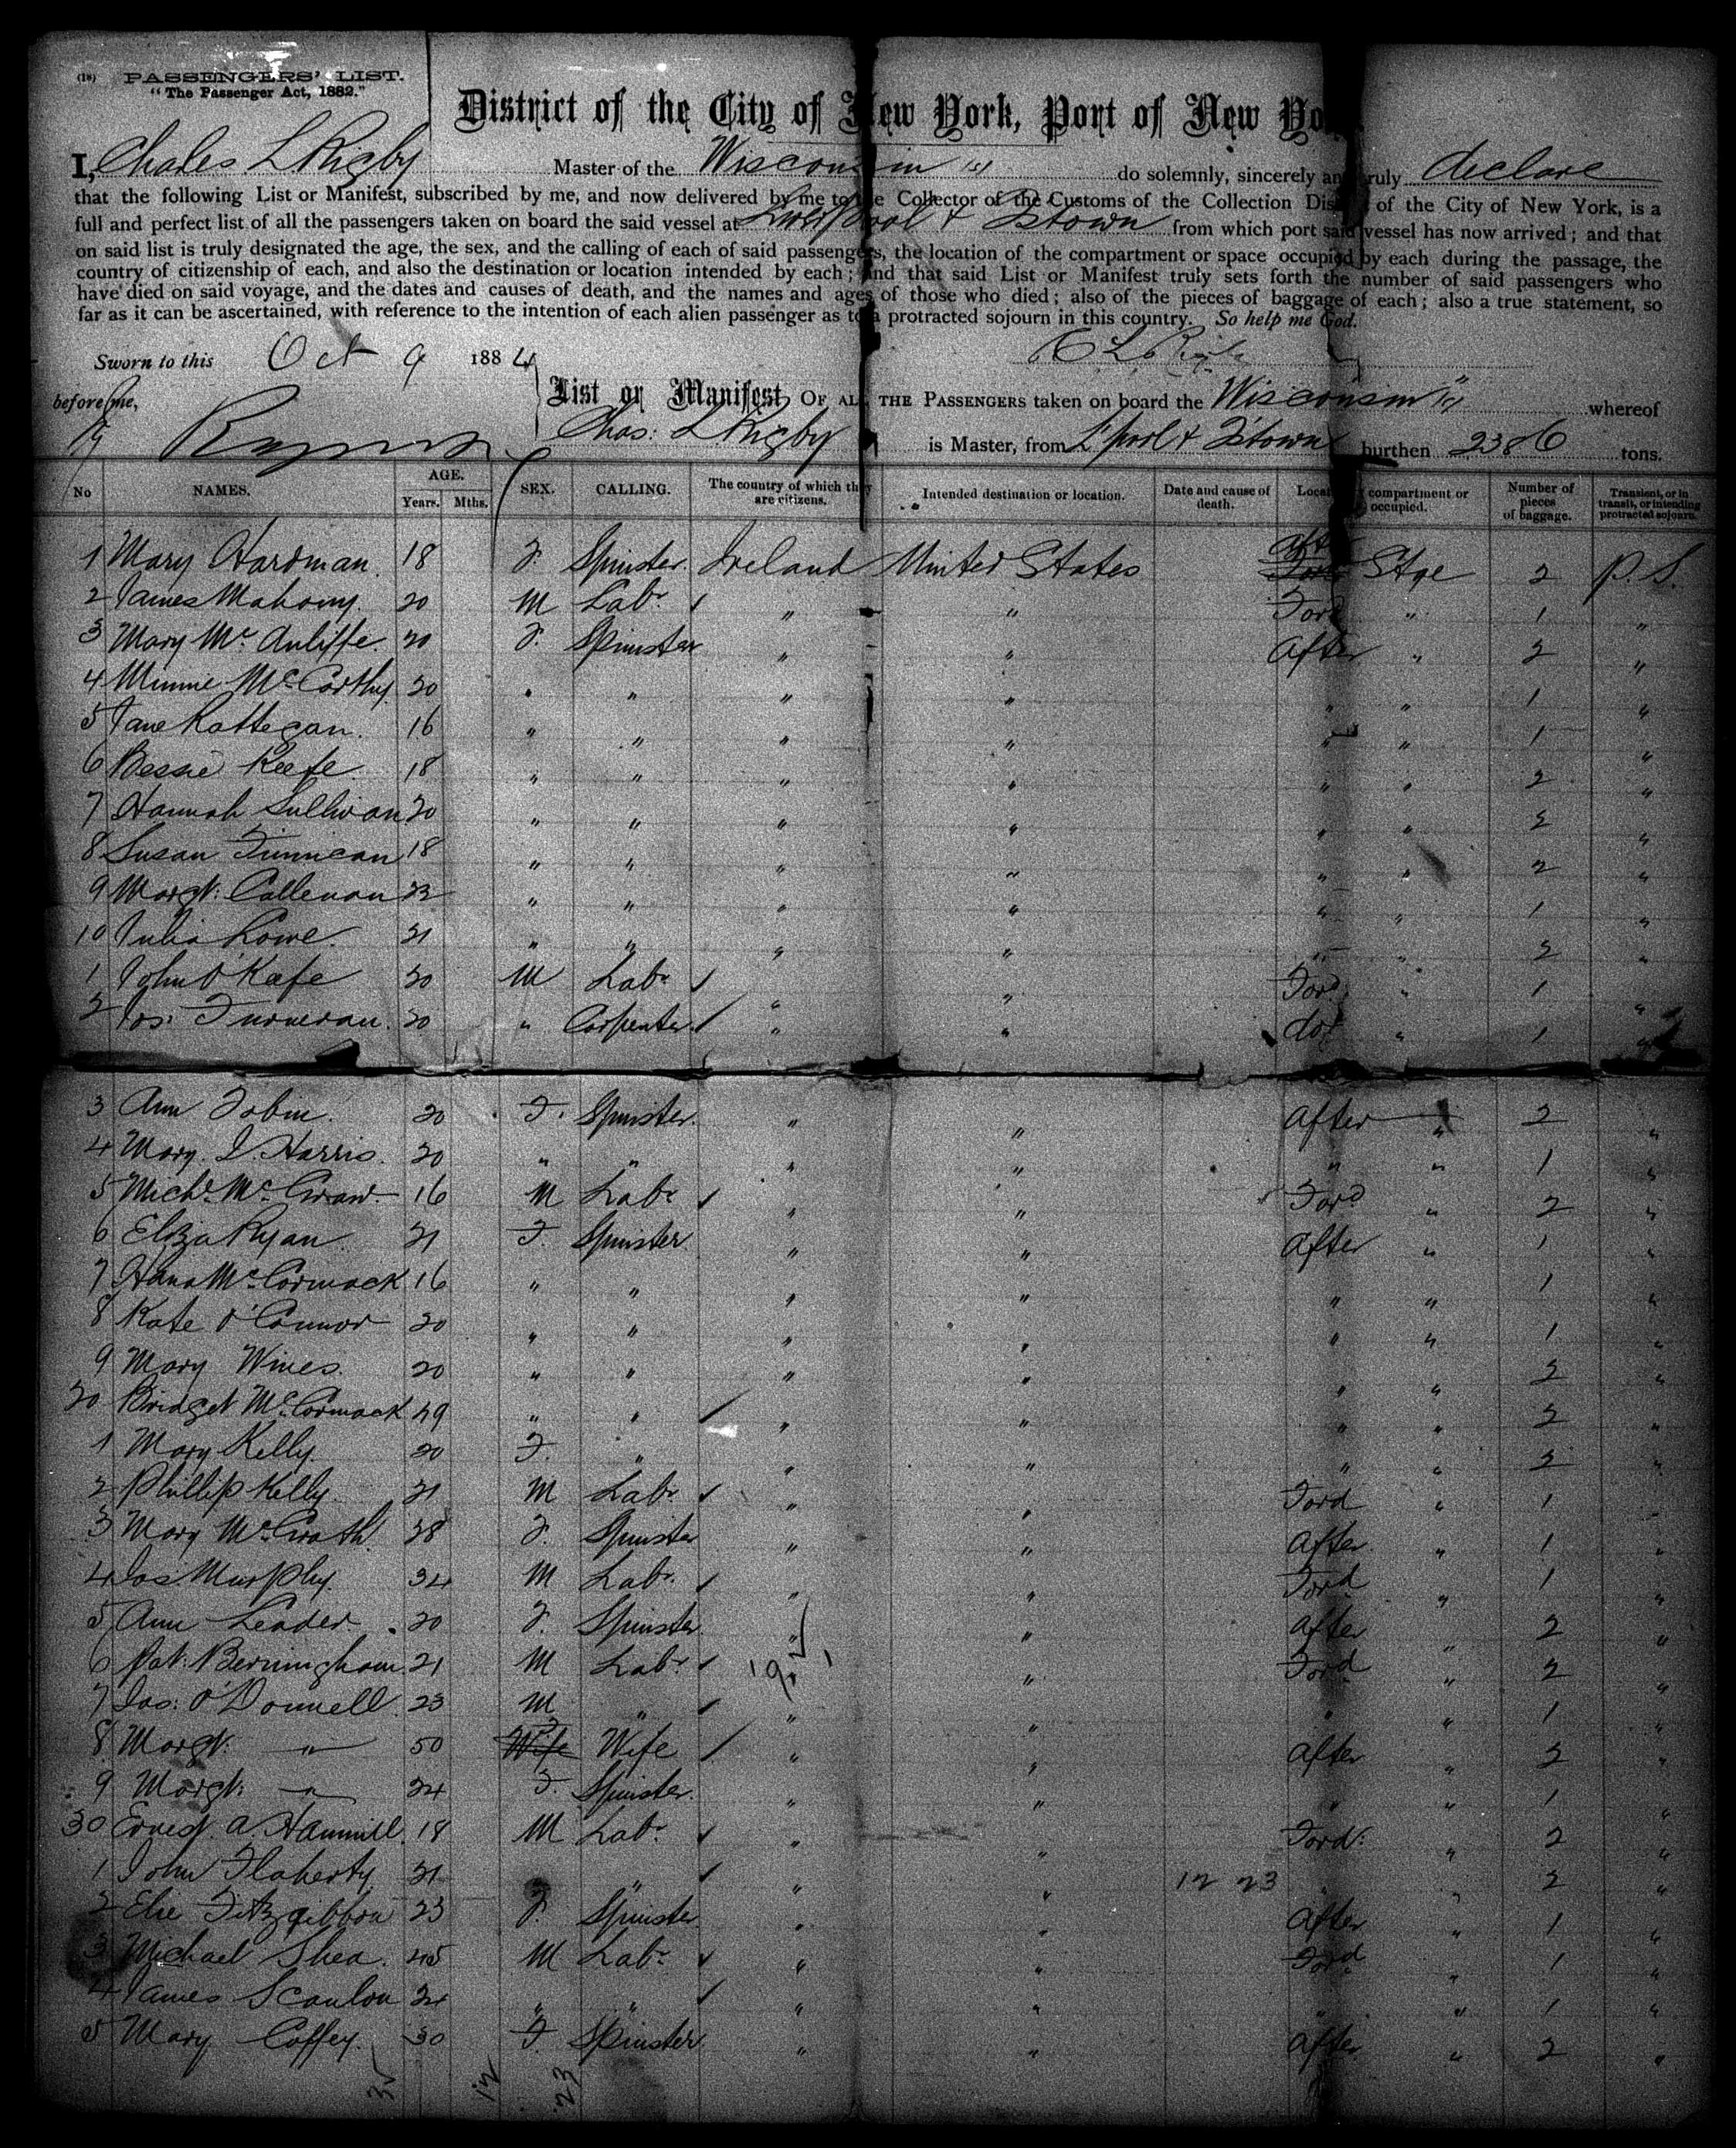 (18) PASSENGERS' LIST.
"The Passenger Act, 1882."
District of the City of New York, Port of New Yo
I, Charles L Rigby Master of the Wisconsin (s) do solemnly, sincerely and truly declare
that the following List or Manifest, subscribed by me, and now delivered by me to the Collector of the Customs of the Collection Dis of the City of New York, is a
full and perfect list of all the passengers taken on board the said vessel at Liverpool & Qstown from which port said vessel has now arrived; and that
on said list is truly designated the age, the sex, and the calling of each of said passengers, the location of the compartment or space occupied by each during the passage, the
country of citizenship of each, and also the destination or location intended by each; and that said List or Manifest truly sets forth the number of said passengers who
have died on said voyage, and the dates and causes of death, and the names and ages of those who died; also of the pieces of baggage of each; also a true statement, so
far as it can be ascertained, with reference to the intention of each alien passenger as to a protracted sojourn in this country. So help me God.
Sworn to this Oct 9 1884 C L Rigby
before me, List or Manifest OF ALL THE PASSENGERS taken on board the "Wisconsin" (s) whereof
Chas: L Rigby is Master, from L'pool & Qstown burthen 2386 tons.
No NAMES. AGE. Years. Mths. SEX. CALLING. The country of which they are citizens. Intended destination or location. Date and cause of death. Locat compartment or occupied. Number of pieces of baggage. Transient, or in transit, or intending protracted sojourn.
1 Mary Hardman. 18 F. Spinster. Ireland United States After Stge 2 P. S.
2 James Mahony. 20 M Labr. " " Ford " 1 "
3 Mary McAuliffe. 20 F. Spinster " " After " 2 "
4 Minnie McCarthy. 20 " " " " " " 1 "
5 Jane Rattegan. 16 " " " " " " 1 "
6 Bessie Keefe. 18 " " " " " " 2 "
7 Hannah Sullivan 20 " " " " " " 2 "
8 Susan Finnican 18 " " " " " " 2 "
9 Margt: Callenan 22 " " " " " " 1 "
10 Julia Lowe. 21 " " " " " " 2 "
1 John O'Keefe 20 M Labr. " " Ford " 1 "
2 Jos: Furneran. 20 " Carpenter. " " do " 1 "
3 Ann Tobin. 20 F. Spinster. " " After " 2 "
4 Mary. J. Harris. 20 " " " " " " 1 "
5 Michl. McGraw 16 M Labr. " " Ford " 2 "
6 Eliza Ryan 21 F. Spinster. " " After " 1 "
7 Hana McCormack 16 " " " " " " 1 "
8 Kate O'Connor 20 " " " " " " 1 "
9 Mary Wines. 20 " " " " " " 2 "
20 Bridget McCormack 49 " " " " " " 2 "
1 Mary Kelly. 20 F. " " " " " 2 "
2 Phillip Kelly. 21 M Labr. " " Ford " 1 "
3 Mary McGrath. 28 F. Spinster " " After " 1 "
4 Jas Murphy. 34 M Labr. " " Ford " 1 "
5 Ann Leader 20 F. Spinster " " After " 2 "
6 Pat: Bermingham 21 M Labr. " " Ford " 2 "
7 Jas: O'Donnell. 23 M " " " " " 1 "
8 Margt: " 50 F Wife " " After " 2 "
9 Margt: " 24 F. Spinster. " " " " 1 "
30 Ernest. A. Hammill. 18 M Labr. " " Ford: " 2 "
1 John Flaherty 21 " " " " 12 23 " " 2 "
2 Elie Fitzgibbon 23 F. Spinster " " After " 1 "
3 Michael Shea. 45 M Labr. " " Ford " 1 "
4 James Scanlon 24 " " " " " " 1 "
5 Mary Coffey. 30 F. Spinster. " " After " 2 "
12 23